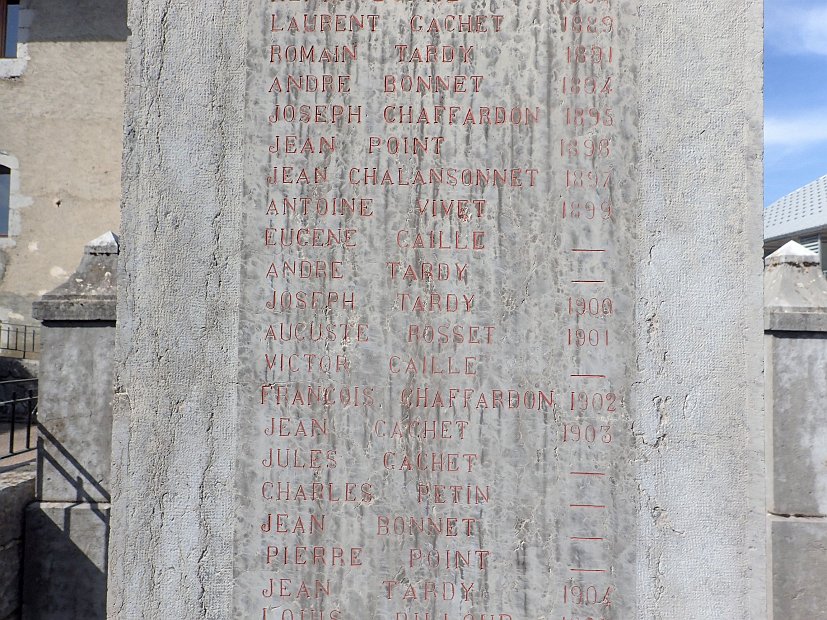 LAURENT GACHET 1889
ROMAIN TARDY 1891
ANDRE BONNET 1894
JOSEPH CHAFFARDON 1895
JEAN POINT 1898
JEAN CHALANSONNET 1897
ANTOINE VIVET 1899
EUGENE CAILLE —
ANDRE TARDY —
JOSEPH TARDY 1900
AUGUSTE ROSSET 1901
VICTOR CAILLE —
FRANÇOIS CHAFFARDON 1902
JEAN GACHET 1903
JULES GACHET —
CHARLES PETIN —
JEAN BONNET —
PIERRE POINT —
JEAN TARDY 1904
LOUIS